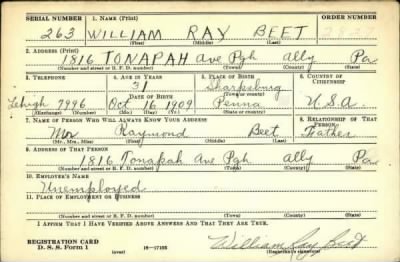 SERIAL NUMBER 1. NAME (Print) ORDER NUMBER
263 WILLIAM RAY BEET
(First) (Middle) (Last)
2. ADDRESS (Print)
1816 TONAPAH Ave Pgh Ally Pa
(Number and street or R. F. D. number) (Town) (County) (State)
3. TELEPHONE 4. AGE IN YEARS 5. PLACE OF BIRTH 6. COUNTRY OF CITIZENSHIP
31 Sharpsburg
DATE OF BIRTH (Town or county)
Lehigh 7996 Oct 16 1909 Penna U.S.a.
(Exchange) (Number) (Mo.) (Day) (Yr.) (State or country)
7. NAME OF PERSON WHO WILL ALWAYS KNOW YOUR ADDRESS 8. RELATIONSHIP OF THAT PERSON
Mr Raymond Beet Father
(Mr., Mrs., Miss) (First) (Middle) (Last)
9. ADDRESS OF THAT PERSON
1816 Tonapah Ave Pgh Ally Pa
(Number and street or R. F. D. number) (Town) (County) (State)
10. EMPLOYER'S NAME
Unemployed
11. PLACE OF EMPLOYMENT OR BUSINESS
(Number and street or R. F. D. number) (Town) (County) (State)
I AFFIRM THAT I HAVE VERIFIED ABOVE ANSWERS AND THAT THEY ARE TRUE.
REGISTRATION CARD
D. S. S. Form 1 (over) 16—17105 William Ray Beet
(Registrant's signature)